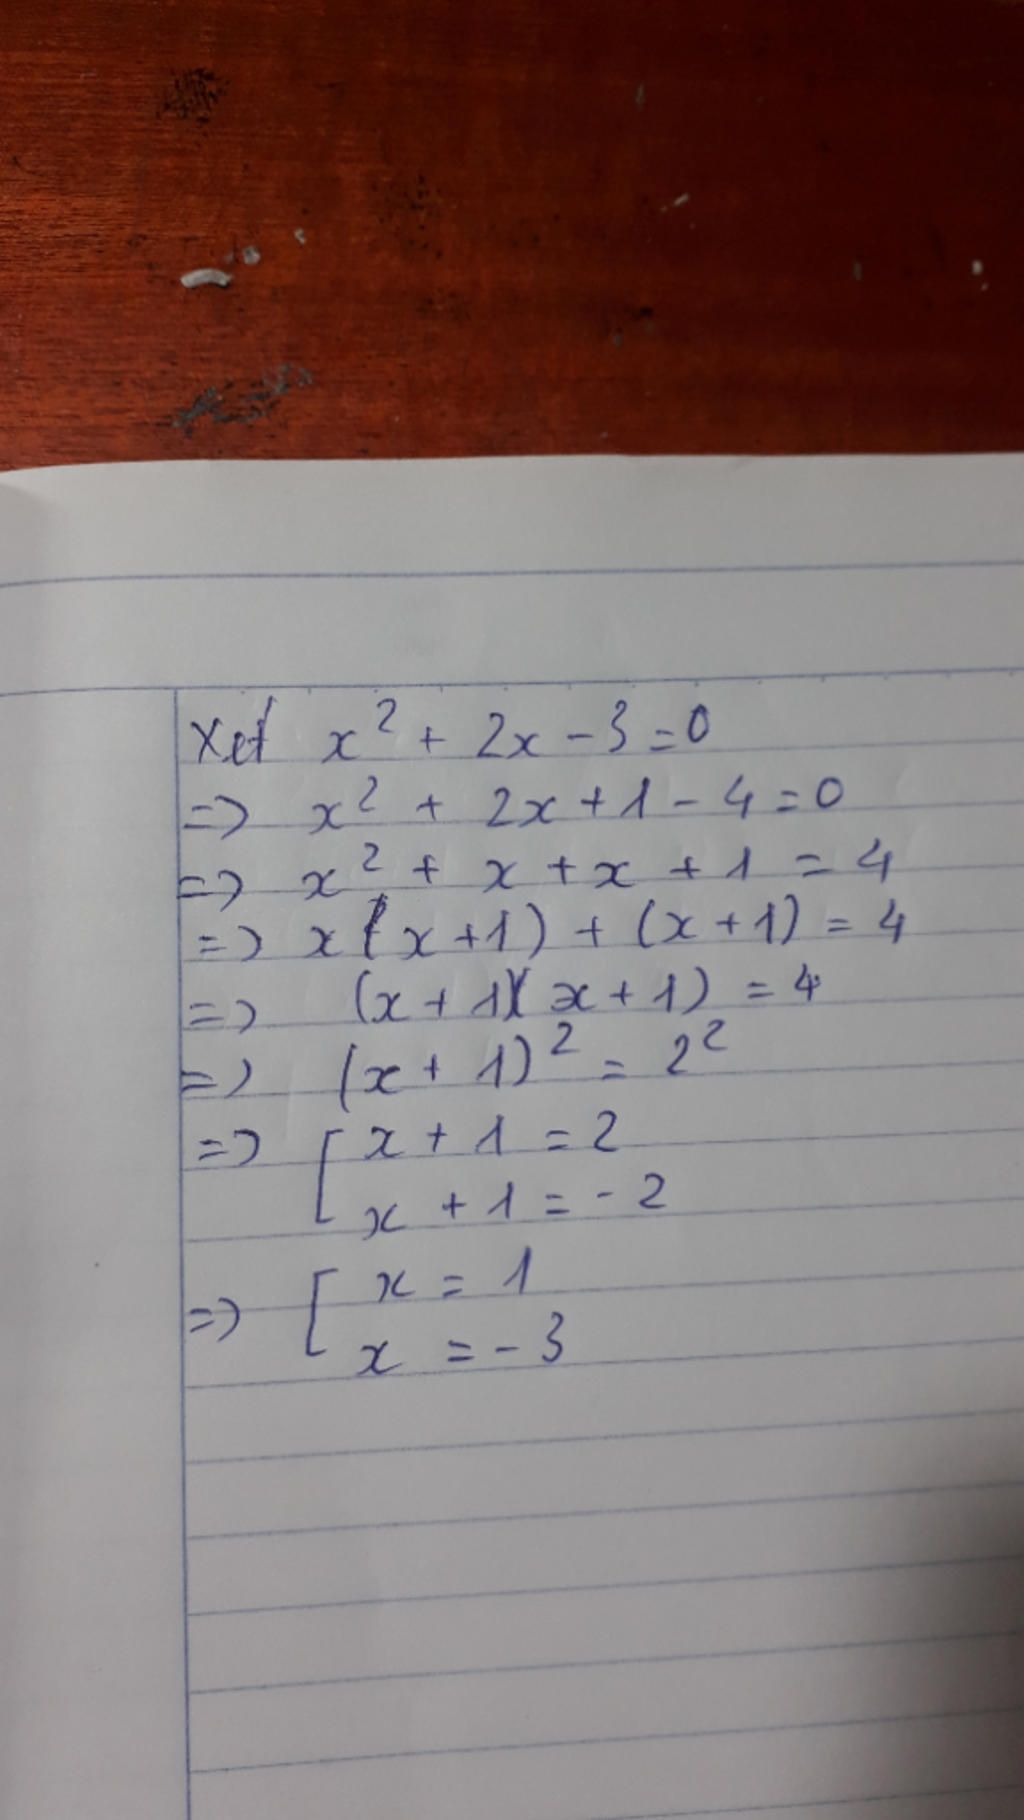 Xét x² + 2x - 3 = 0
=> x² + 2x + 1 - 4 = 0
=> x² + x + x + 1 = 4
=> x(x + 1) + (x + 1) = 4
=> (x + 1)(x + 1) = 4
=> (x + 1)² = 2²
=> [ x + 1 = 2
x + 1 = - 2
=> [ x = 1
x = - 3